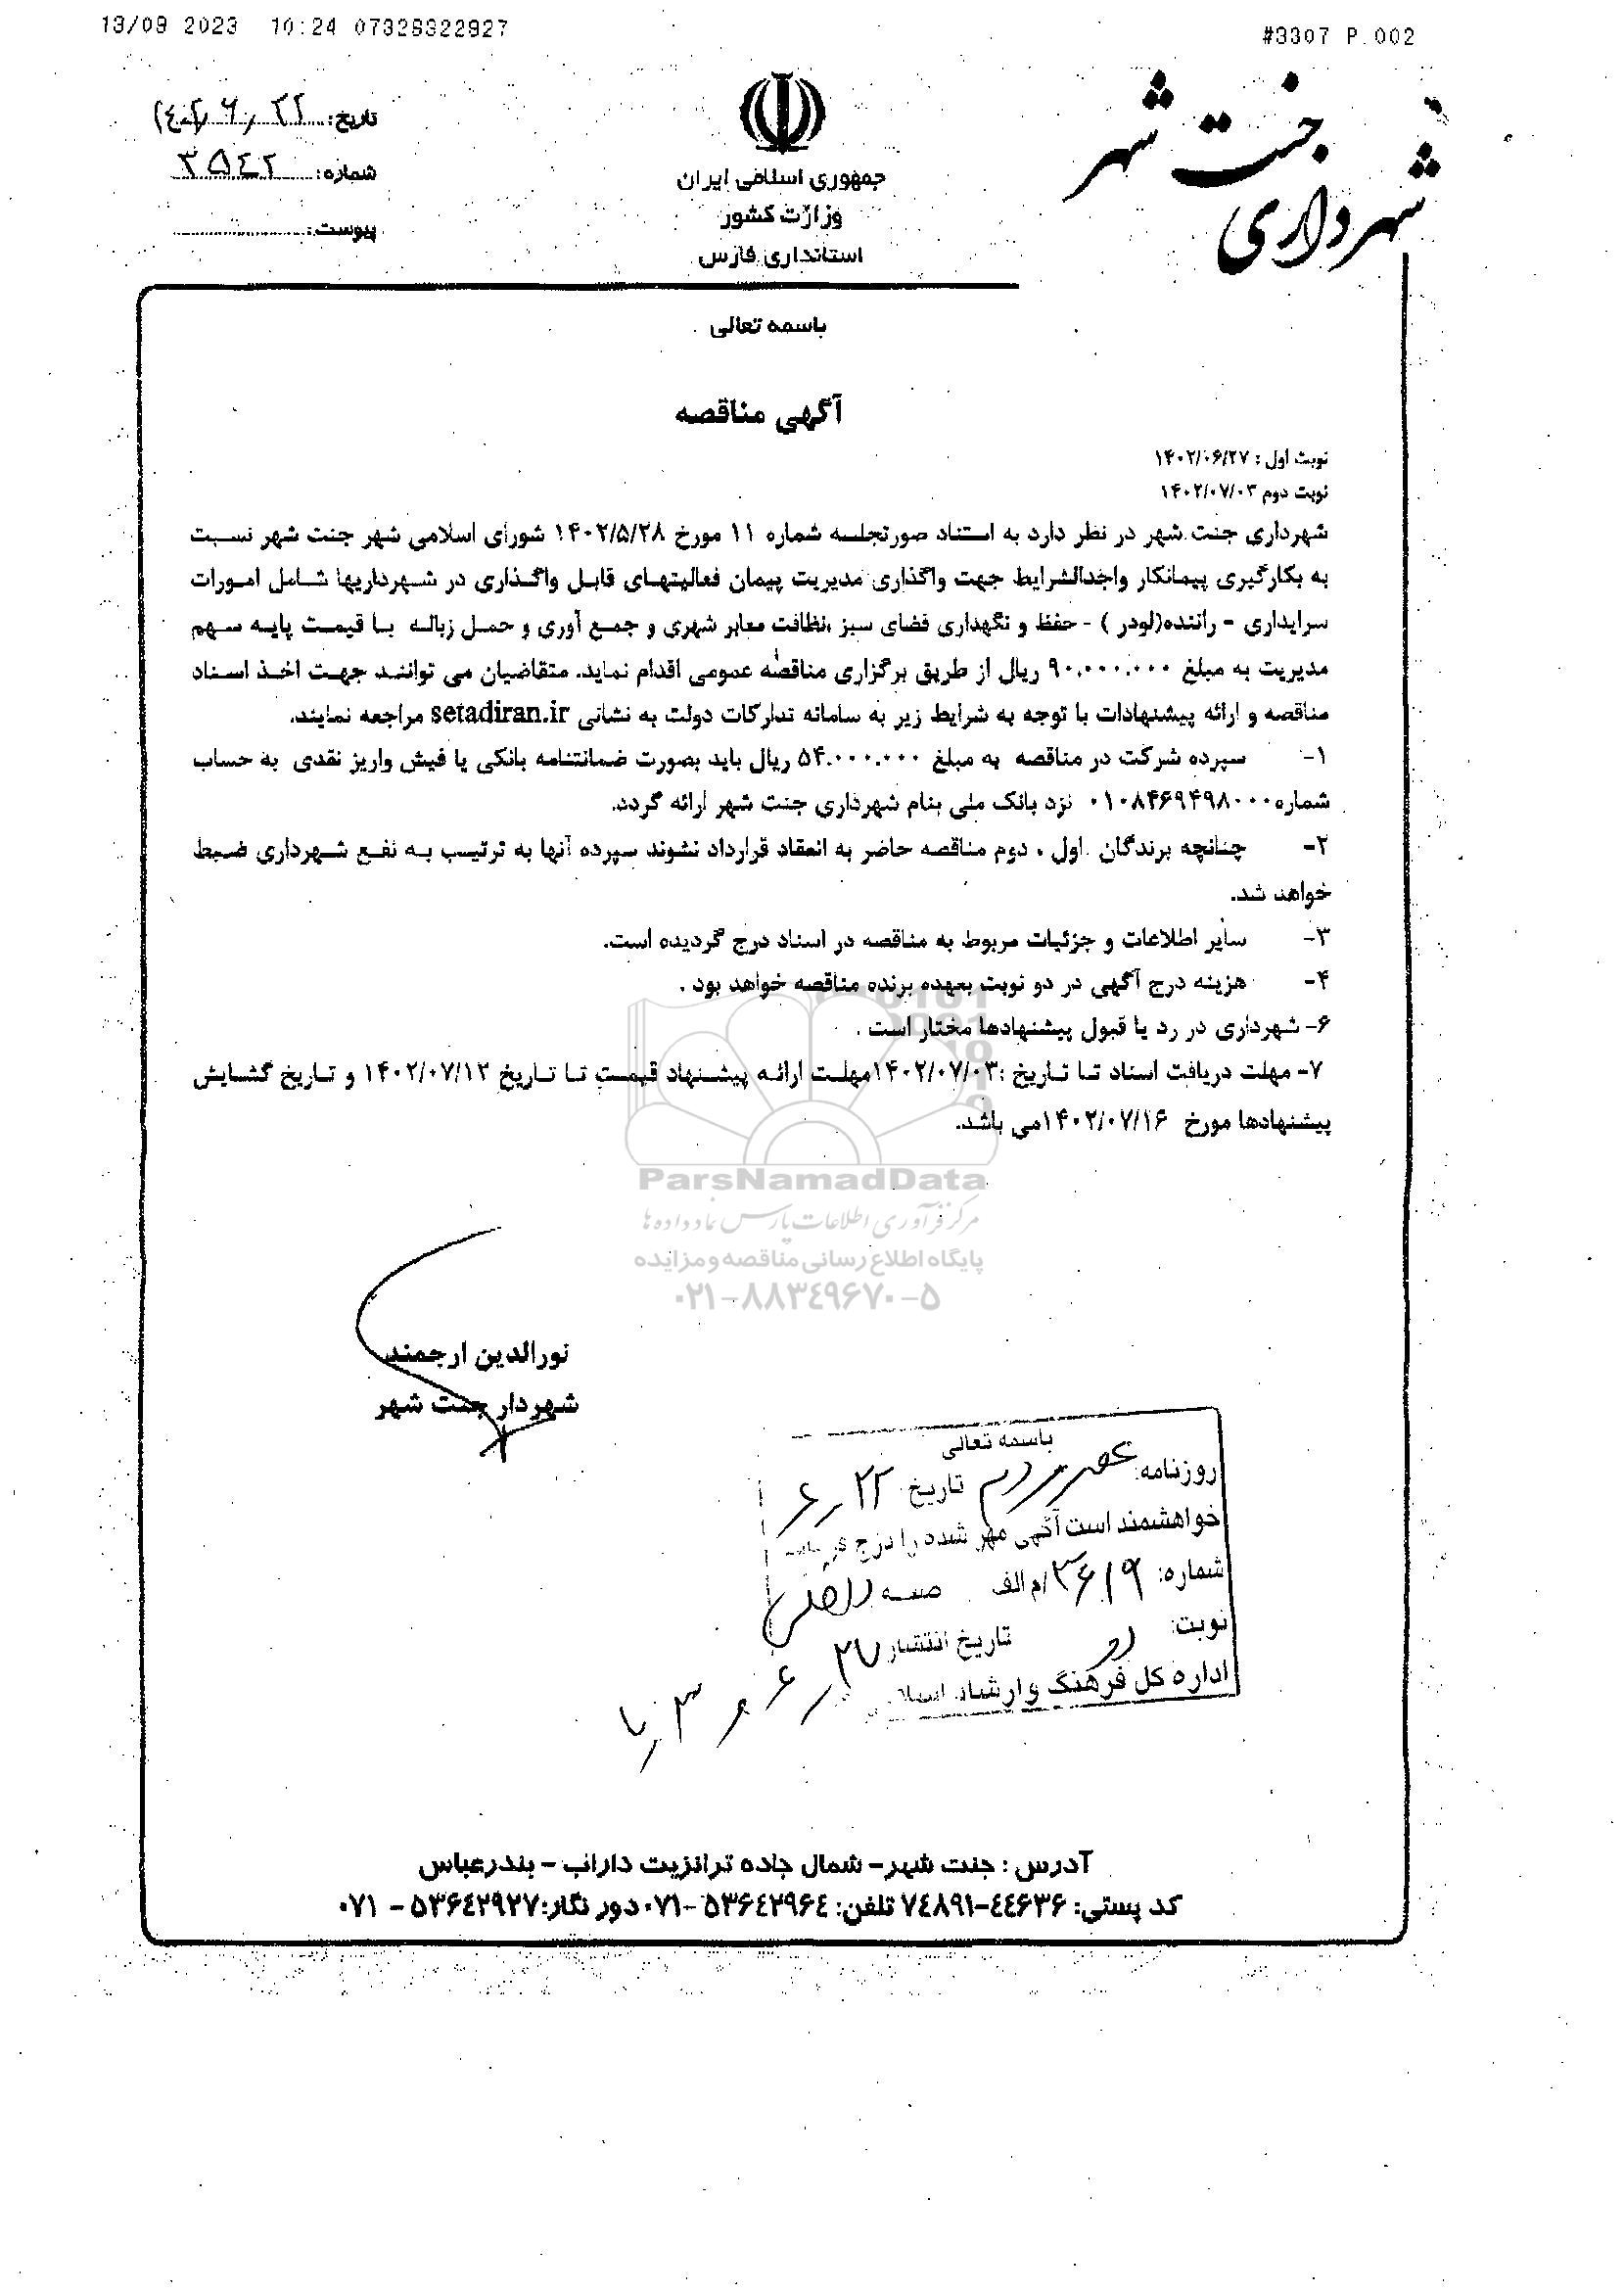 13/09 2023 10:24 07326322927
#3307 P.002
شهرداری جنت شهر
جمهوری اسلامی ایران
وزارت کشور
استانداری فارس
تاریخ: ۱۴۰۲/۶/۲۲
شماره: ۳۵۴۲
پیوست:
باسمه تعالی
آگهی مناقصه
نوبت اول : ۱۴۰۲/۰۶/۲۷
نوبت دوم ۱۴۰۲/۰۷/۰۳
شهرداری جنت شهر در نظر دارد به استناد صورتجلسه شماره ۱۱ مورخ ۱۴۰۲/۵/۲۸ شورای اسلامی شهر جنت شهر نسبت
به بکارگیری پیمانکار واجدالشرایط جهت واگذاری مدیریت پیمان فعالیتهای قابل واگذاری در شهرداریها شامل امورات
سرایداری - راننده(لودر ) - حفظ و نگهداری فضای سبز ،نظافت معابر شهری و جمع آوری و حمل زباله با قیمت پایه سهم
مدیریت به مبلغ ۹۰.۰۰۰.۰۰۰ ریال از طریق برگزاری مناقصه عمومی اقدام نماید. متقاضیان می توانند جهت اخذ اسناد
مناقصه و ارائه پیشنهادات با توجه به شرایط زیر به سامانه تدارکات دولت به نشانی setadiran.ir مراجعه نمایند.
۱- سپرده شرکت در مناقصه به مبلغ ۵۴.۰۰۰.۰۰۰ ریال باید بصورت ضمانتنامه بانکی یا فیش واریز نقدی به حساب
شماره ۰۱۰۸۴۶۹۴۹۸۰۰۰ نزد بانک ملی بنام شهرداری جنت شهر ارائه گردد.
۲- چنانچه برندگان اول ، دوم مناقصه حاضر به انعقاد قرارداد نشوند سپرده آنها به ترتیب به نفع شهرداری ضبط
خواهد شد.
۳- سایر اطلاعات و جزئیات مربوط به مناقصه در اسناد درج گردیده است.
۴- هزینه درج آگهی در دو نوبت بعهده برنده مناقصه خواهد بود .
۶- شهرداری در رد یا قبول پیشنهادها مختار است .
۷- مهلت دریافت اسناد تا تاریخ :۱۴۰۲/۰۷/۰۳مهلت ارائه پیشنهاد قیمت تا تاریخ ۱۴۰۲/۰۷/۱۳ و تاریخ گشایش
پیشنهادها مورخ ۱۴۰۲/۰۷/۱۶می باشد.
ParsNamadData
مرکز فرآوری اطلاعات پارس نماد داده ها
پایگاه اطلاع رسانی مناقصه و مزایده
۰۲۱-۸۸۳۴۹۶۷۰-۵
نورالدین ارجمند
شهردار جنت شهر
باسمه تعالی
روزنامه: عصر مردم تاریخ ۶/۲۲
خواهشمند است آگهی مهر شده را درج
شماره: ۳۶۱۹/م الف
نوبت: دو تاریخ انتشار ۶/۲۷ و ۷/۳
اداره کل فرهنگ و ارشاد اسلامی
آدرس : جنت شهر- شمال جاده ترانزیت داراب - بندرعباس
کد پستی: ۴۴۶۳۶-۷۴۸۹۱ تلفن: ۵۳۶۴۲۹۶۴ -۰۷۱ دور نگار:۵۳۶۴۲۹۲۷ - ۰۷۱